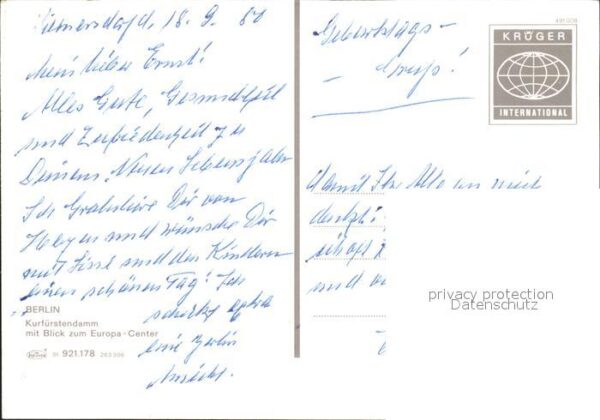 Wilmersdorf d. 18. 9. 80
Mein lieber Ernst!
Alles Gute, Gesundheit
und Zufriedenheit zu
Deinem Neuen Lebensjahr
Ich Gratuliere Dir von
Herzen und wünsche Dir
mit Lissi und den Kindern
einen schönen Tag! Ich
schicke extra
eine Berlin
Ansicht.
BERLIN
Kurfürstendamm
mit Blick zum Europa-Center
KRÜGER 51 921.178 263 306
Geburtstags-
Gruß!
491 009
KRÜGER
INTERNATIONAL
damit Ihr Alle an mich
denkt
und
privacy protection
Datenschutz